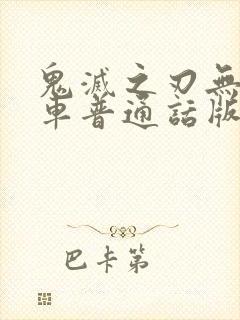 鬼滅之刃無
車普通話版
巴卡第